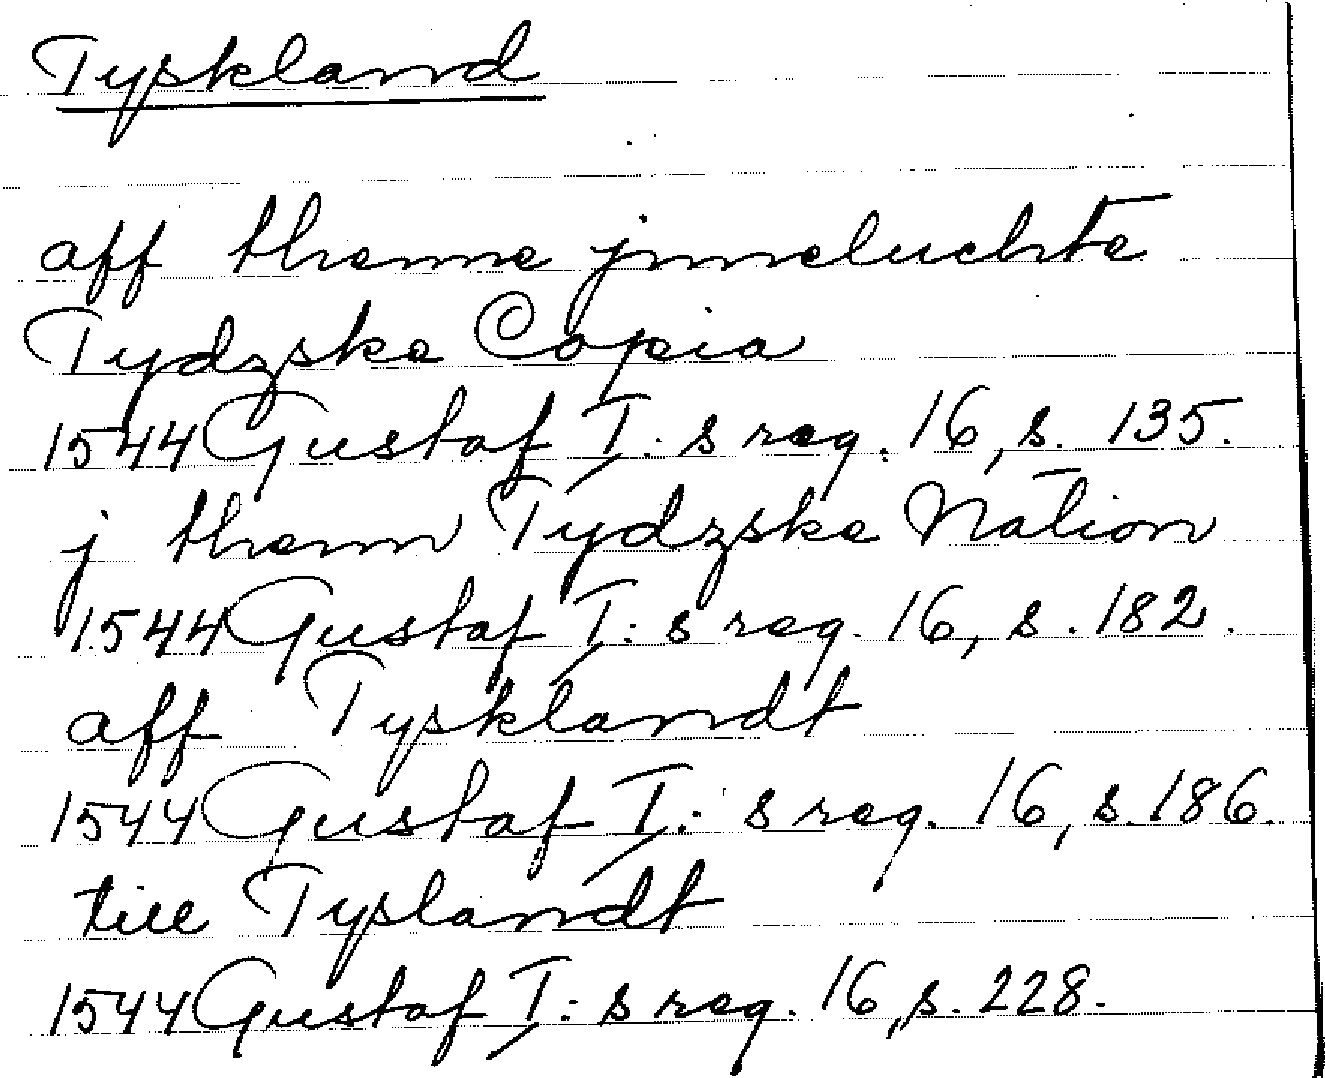 Tyskland
aff thenne jnneluchte
Tydzske Copia
1544 Gustaf I:s reg. 16, s. 135.
j thenn Tydzske Nation
1544 Gustaf I:s reg. 16, s. 182.
aff Tysklandt
1544 Gustaf I:s reg. 16, s. 186.
till Tyslandt
1544 Gustaf I:s reg. 16, s. 228.